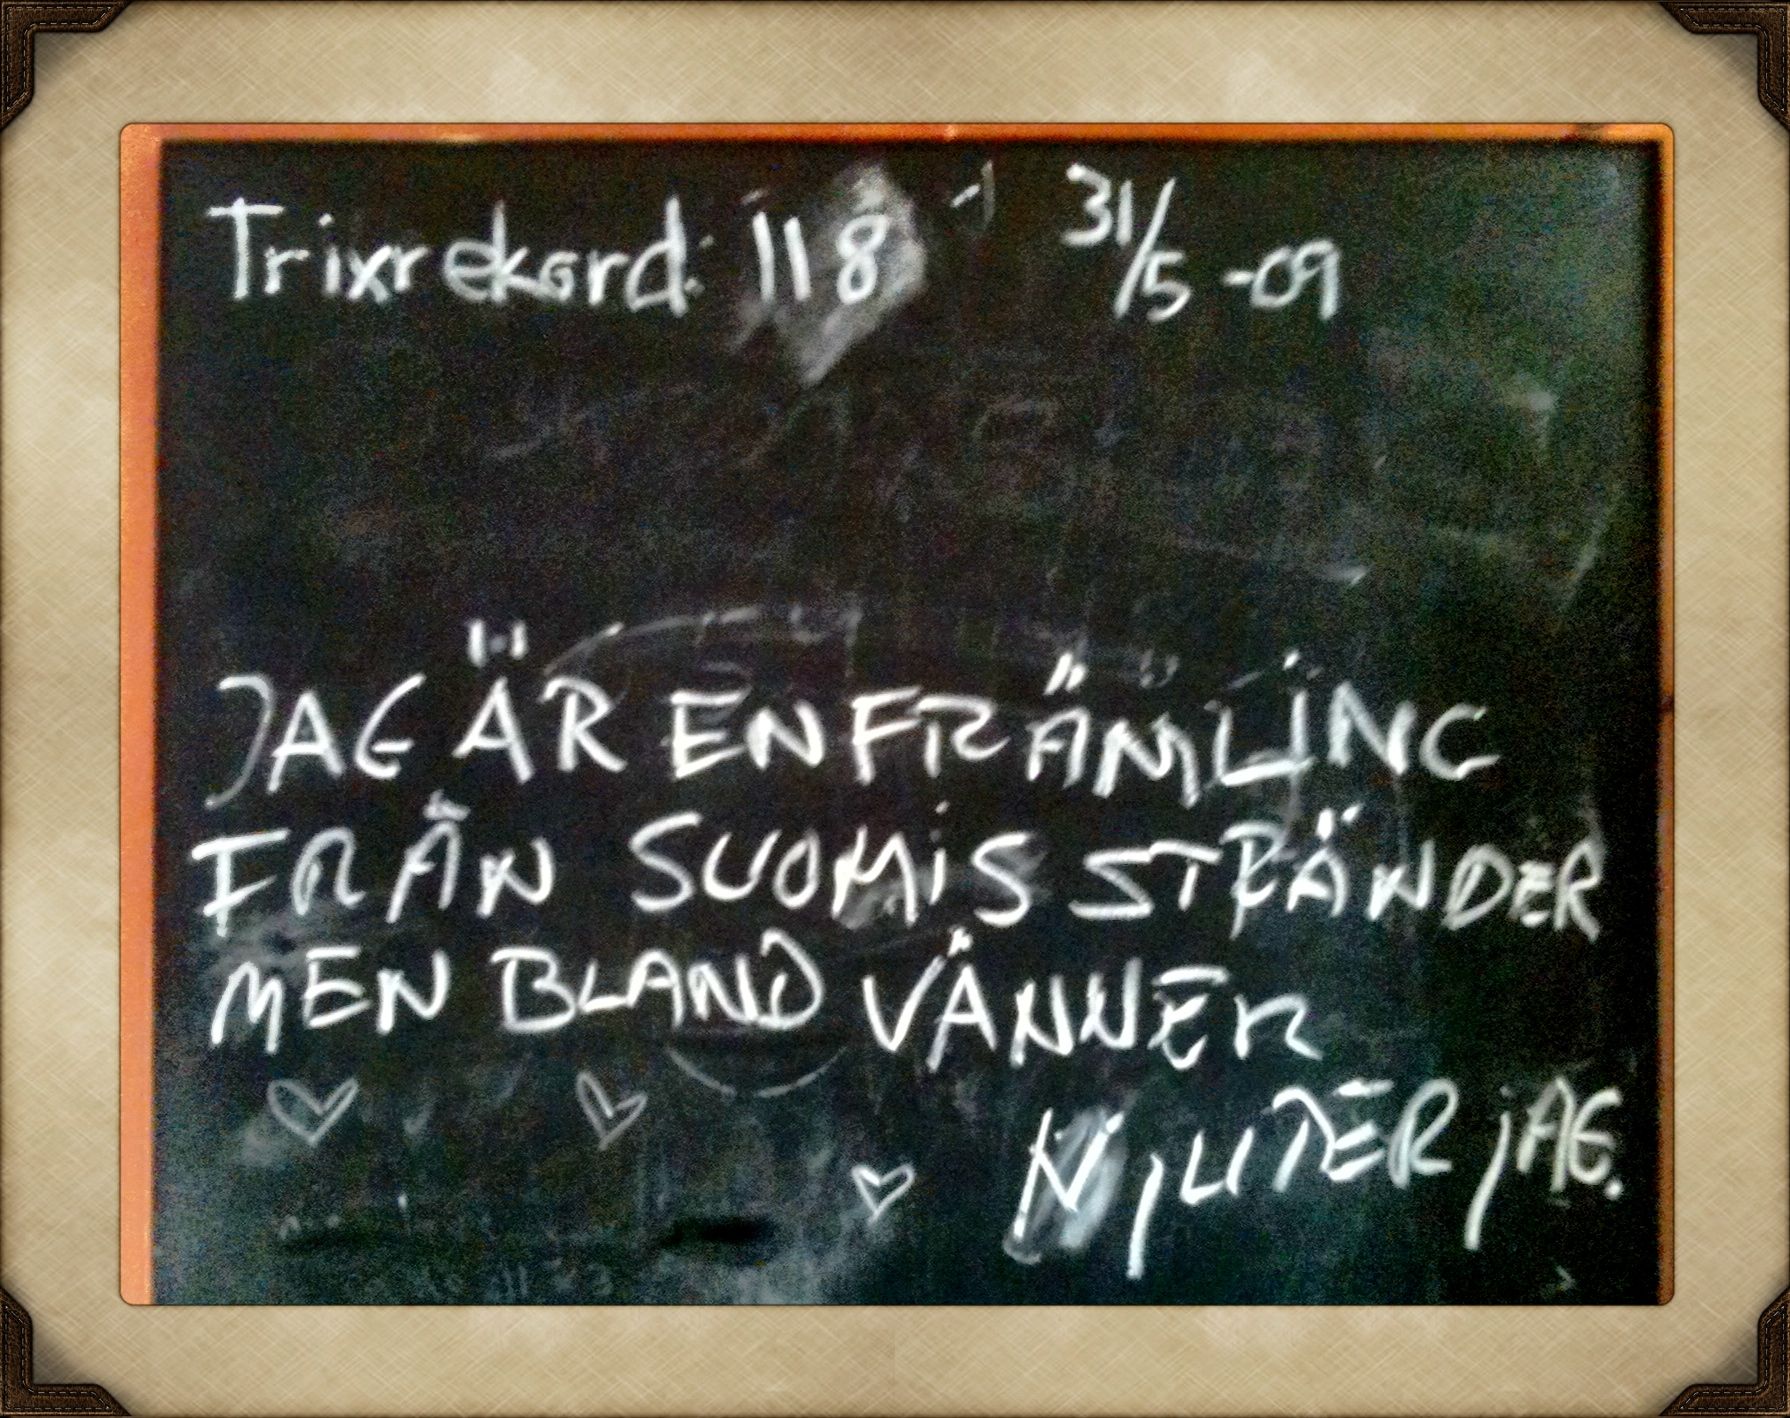 Trixrekord: 118 31/5 -09
JAG ÄR EN FRÄMLING
FRÅN SUOMIS STRÄNDER
MEN BLAND VÄNNER
NJUTER JAG.